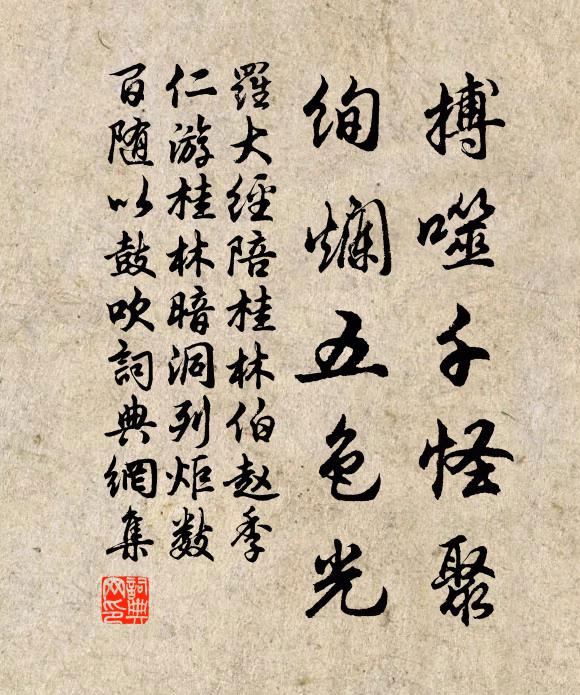 搏噬千怪聚
絢爛五色光
羅大經陪桂林伯赵季
仁游桂林暗洞列炬数
百随以鼓吹詞典網集
詞典网印